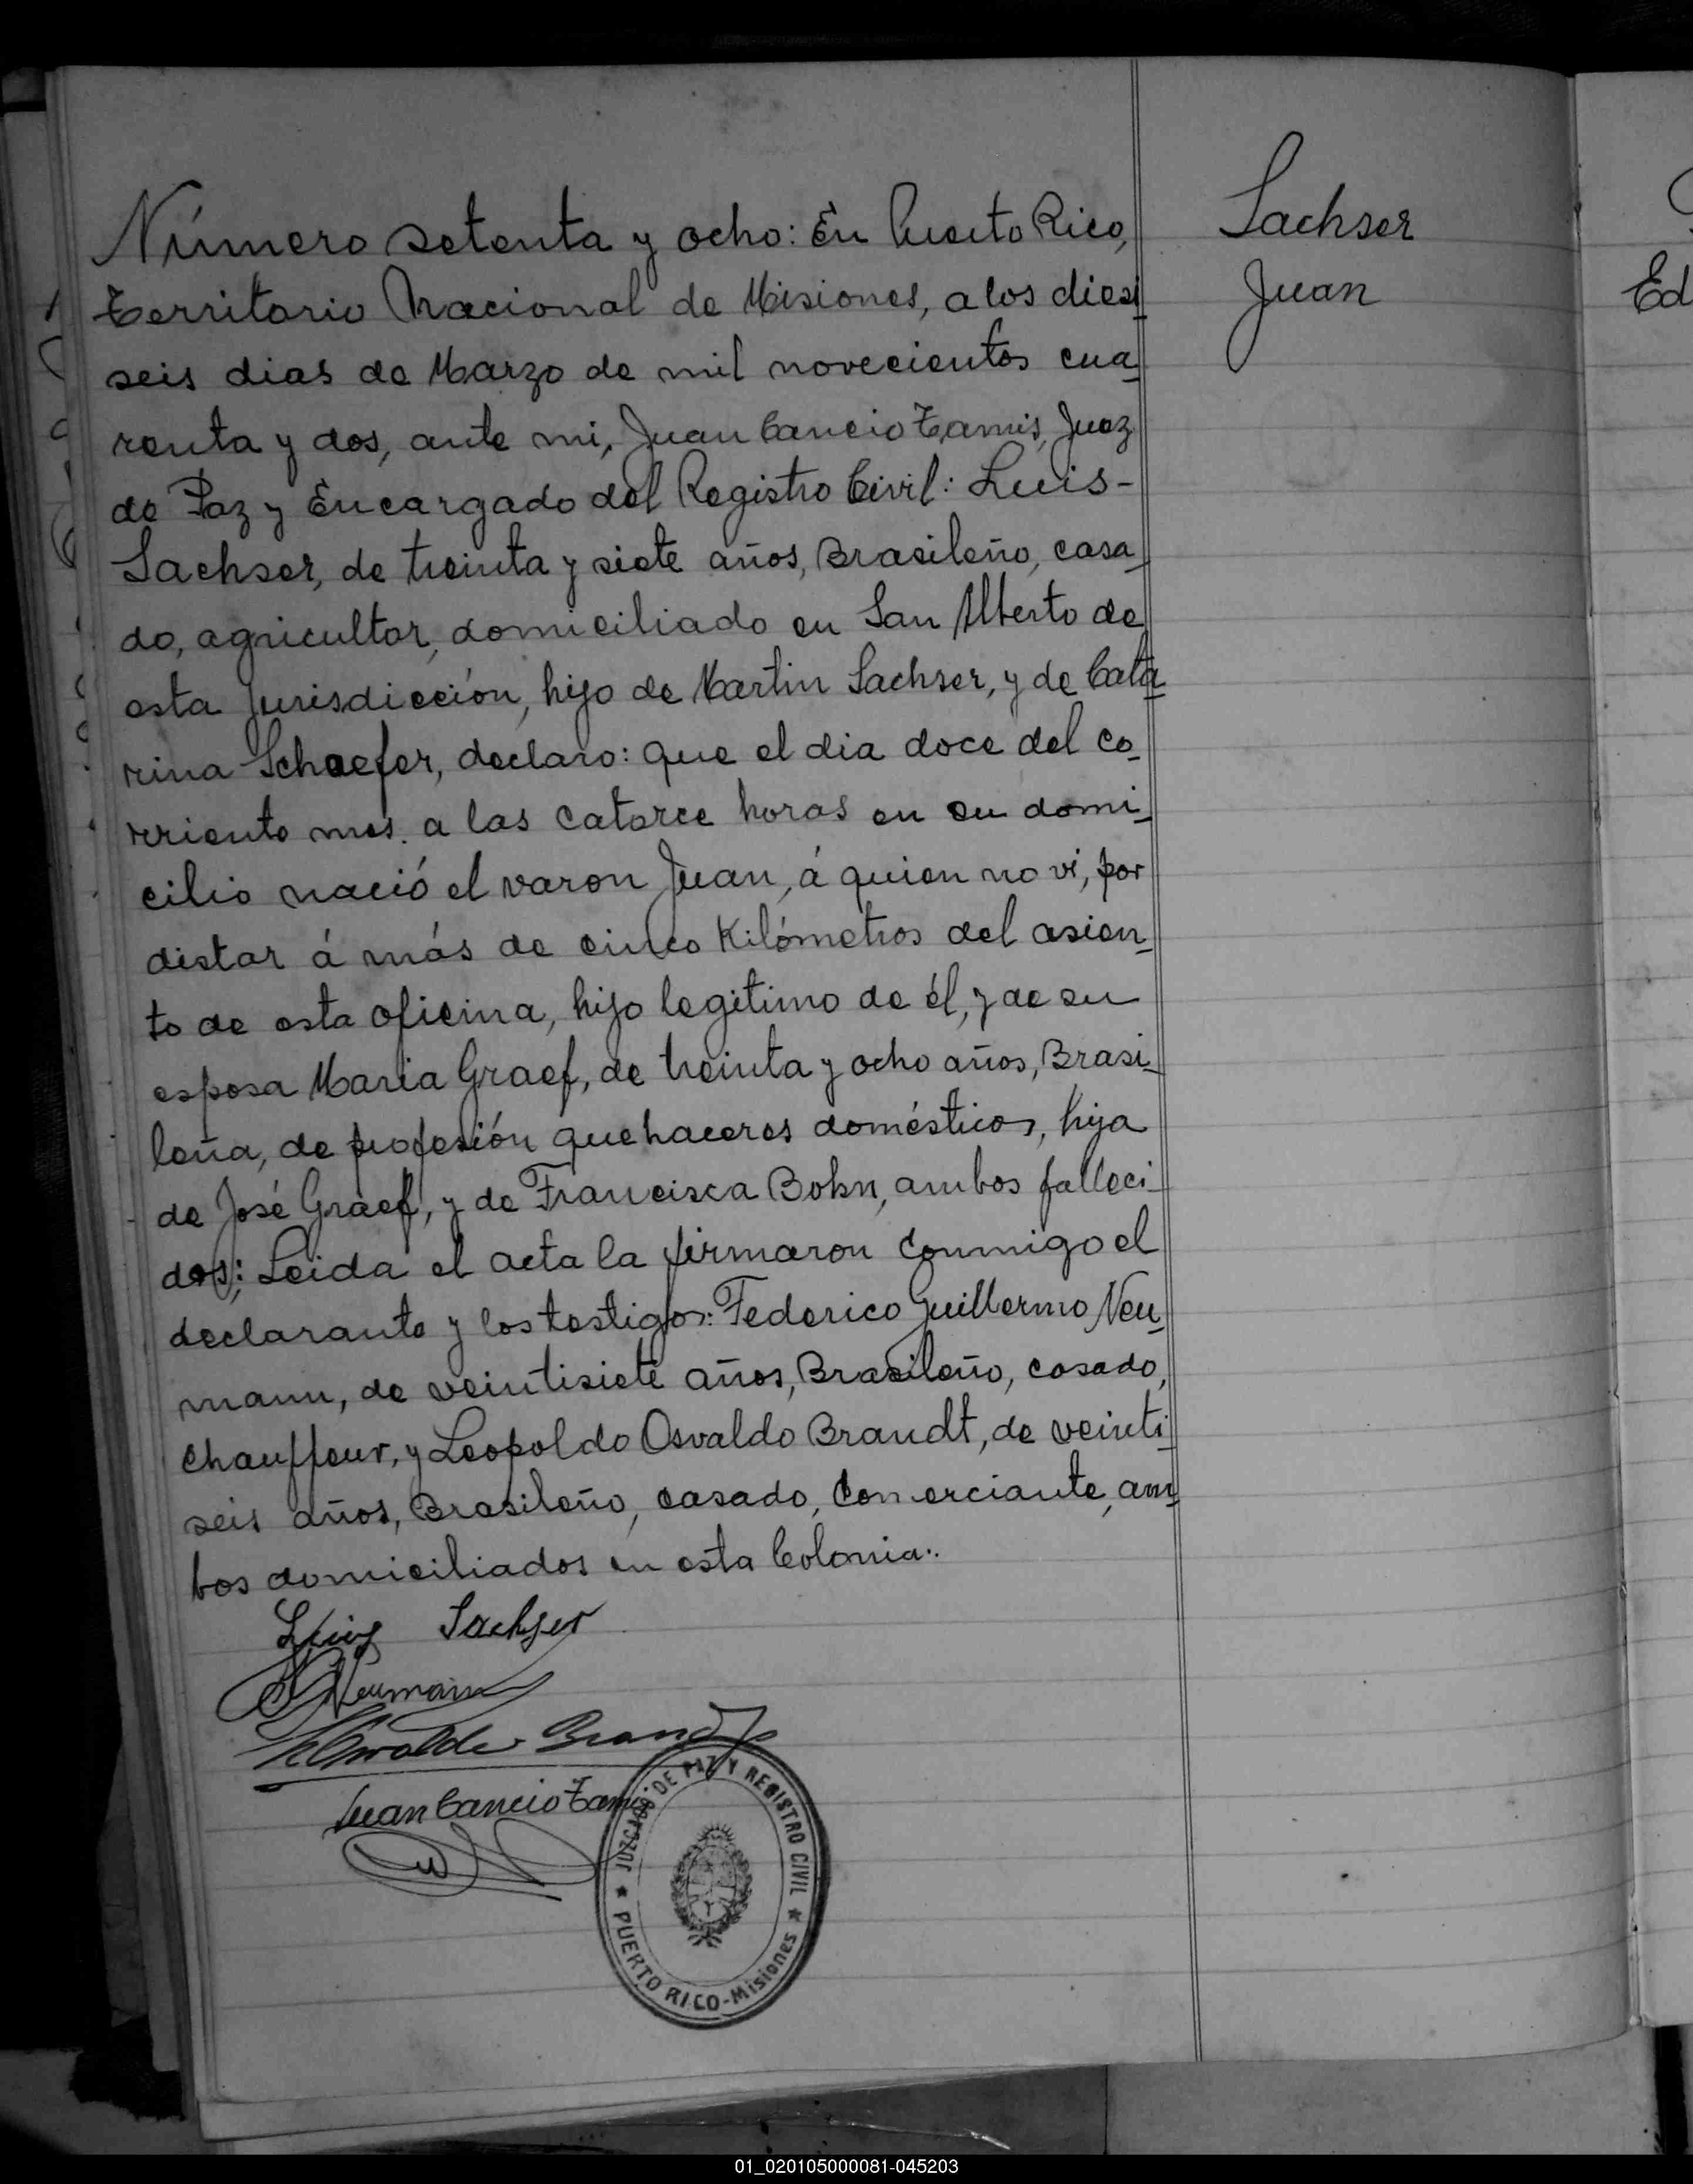 Número setenta y ocho: En Puerto Rico,
Territorio Nacional de Misiones, a los dieci
seis dias de Marzo de mil novecientos cua
renta y dos, ante mi, Juan Cancio Tamis, Juez
de Paz y Encargado del Registro Civil: Luis-
Sachser, de treinta y siete años, Brasileño, casa
do, agricultor, domiciliado en San Alberto de
esta jurisdicción, hijo de Martin Sachser, y de Cata
rina Schaefer, declaro: que el dia doce del co
rriente mes. a las catorce horas en su domi
cilio nació el varon Juan, á quien no vi, por
distar á más de cinco Kilómetros del asien
to de esta oficina, hijo legitimo de él, y de su
esposa Maria Graef, de treinta y ocho años, Brasi
leña, de profesión quehaceres domésticos, hija
de José Graef, y de Francisca Bohn, ambos falleci
dos; Leida el acta la firmaron conmigo el
declarante y los testigos: Federico Guillermo Neu
mann, de veintisiete años, Brasileño, casado,
chauffeur, y Leopoldo Osvaldo Brandt, de veinti
seis años, Brasileño, casado, Comerciante, am
bos domiciliados en esta Colonia..
Luis Sachser
Neumann
Oswaldo Brandt
Juan Cancio Tamis
JUZGADO DE PAZ Y REGISTRO CIVIL
★ PUERTO RICO-Misiones ★
Sachser
Juan
Ed
01_020105000081-045203